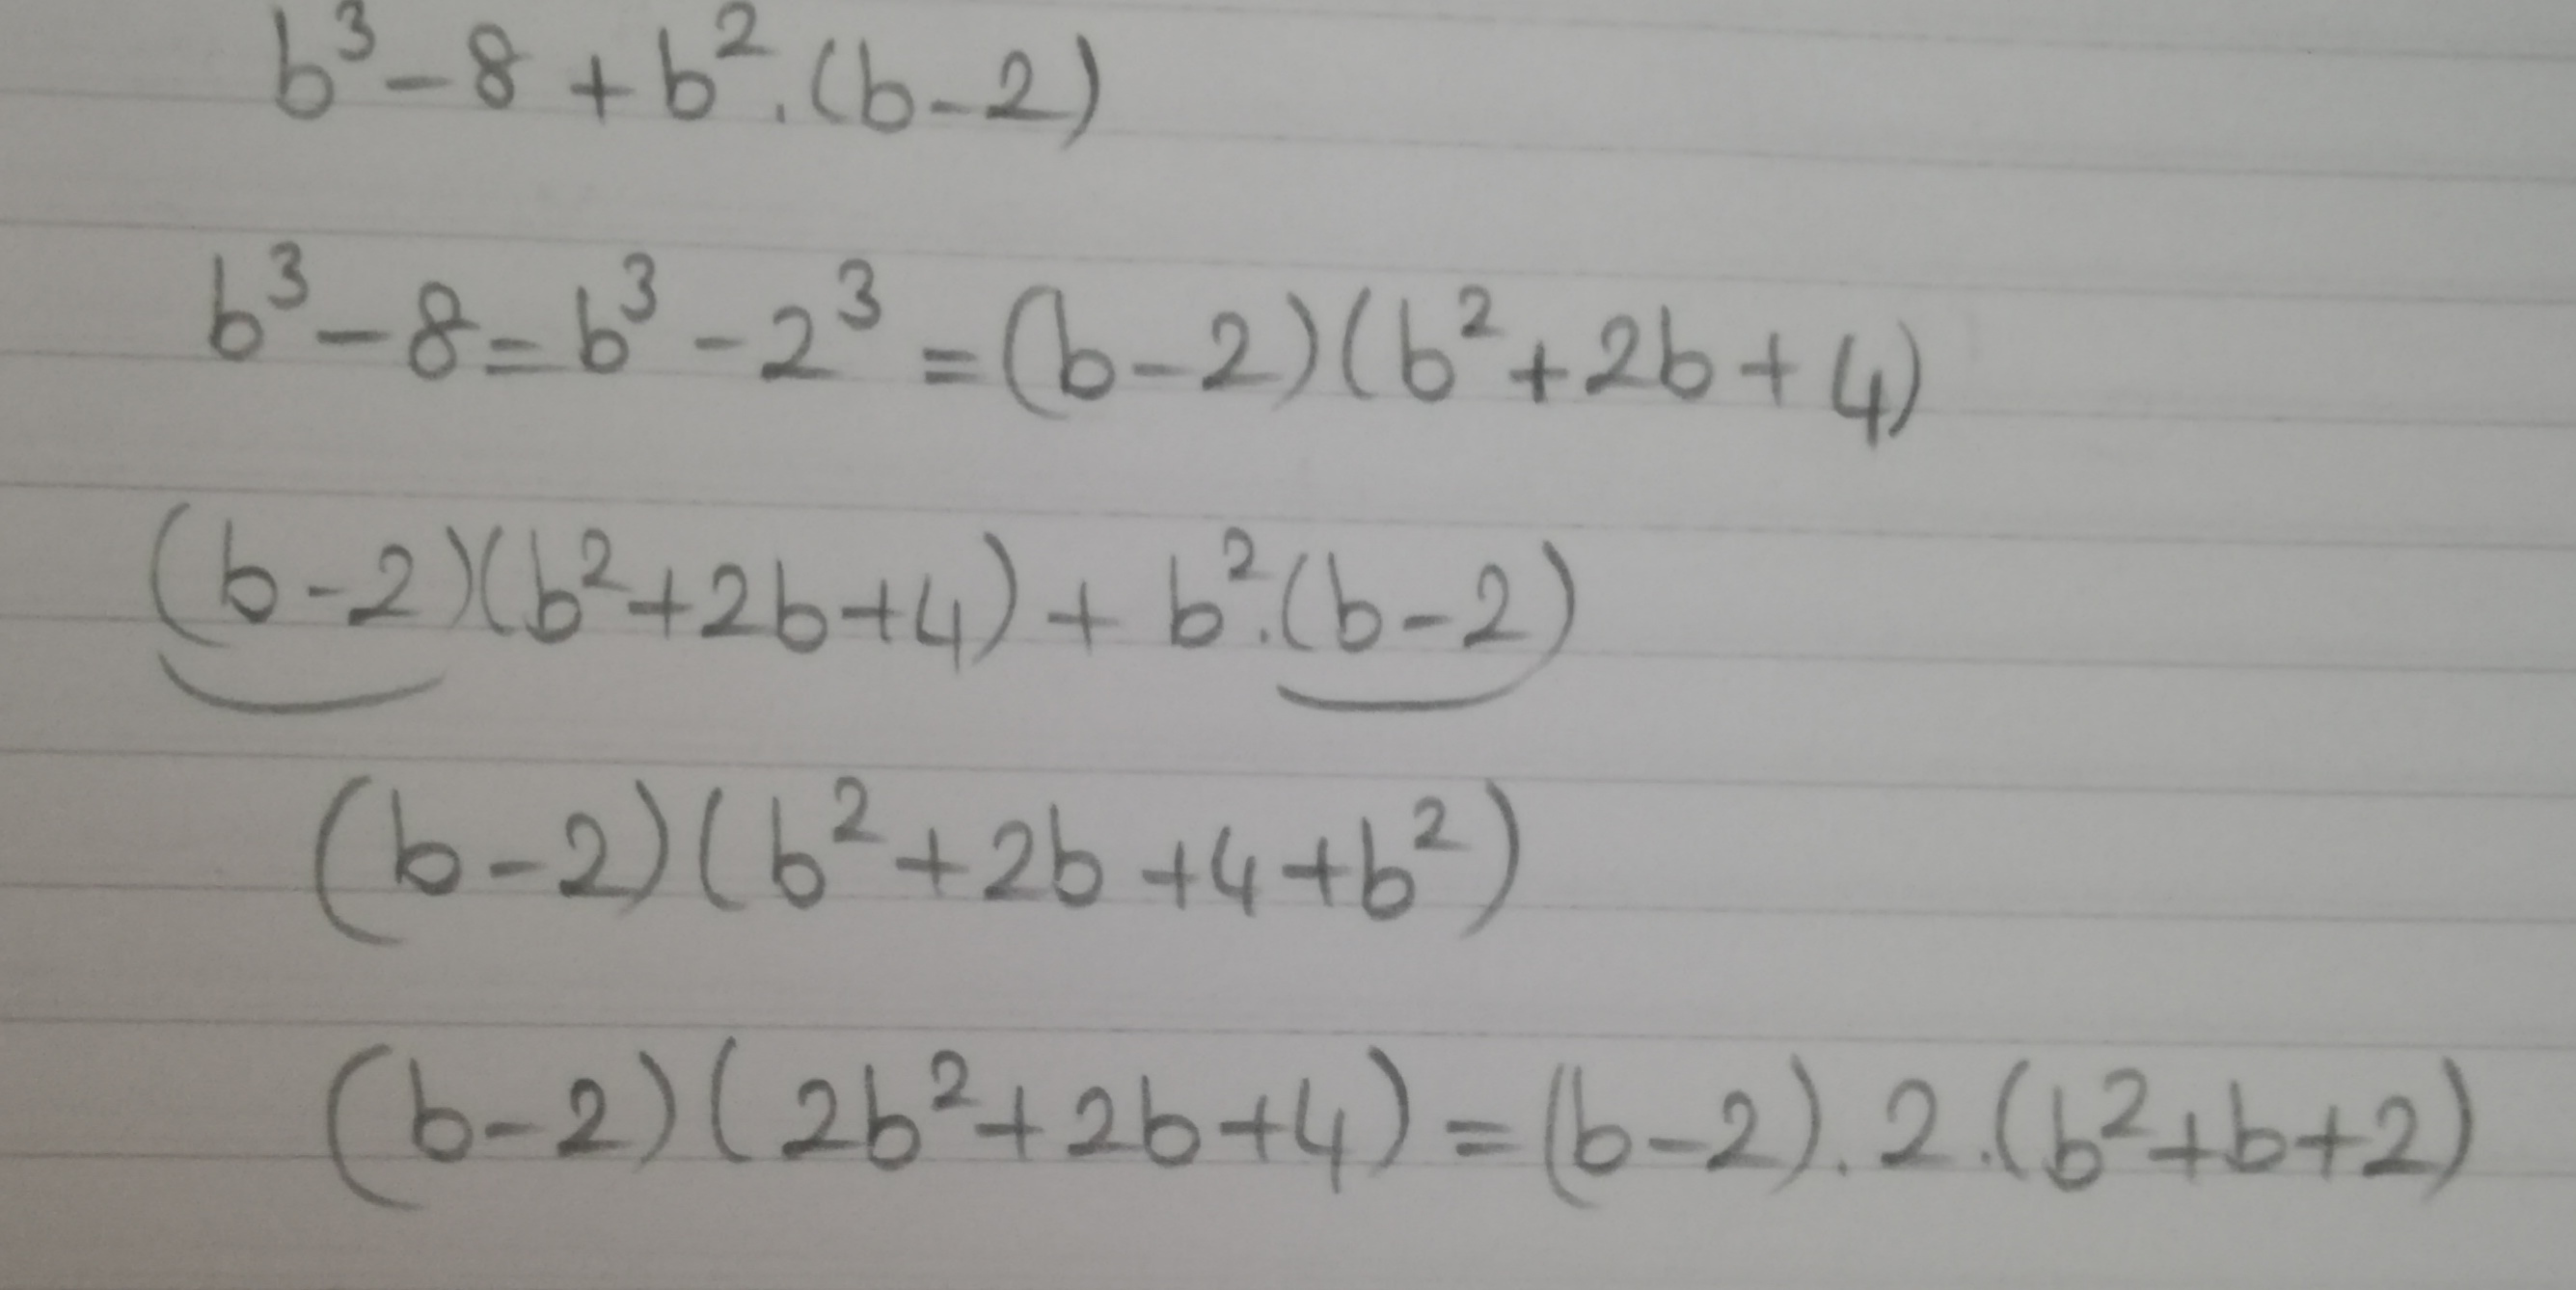 b³-8+b².(b-2)
b³-8=b³-2³=(b-2)(b²+2b+4)
(b-2)(b²+2b+4)+b².(b-2)
(b-2)(b²+2b+4+b²)
(b-2)(2b²+2b+4)=(b-2).2.(b²+b+2)